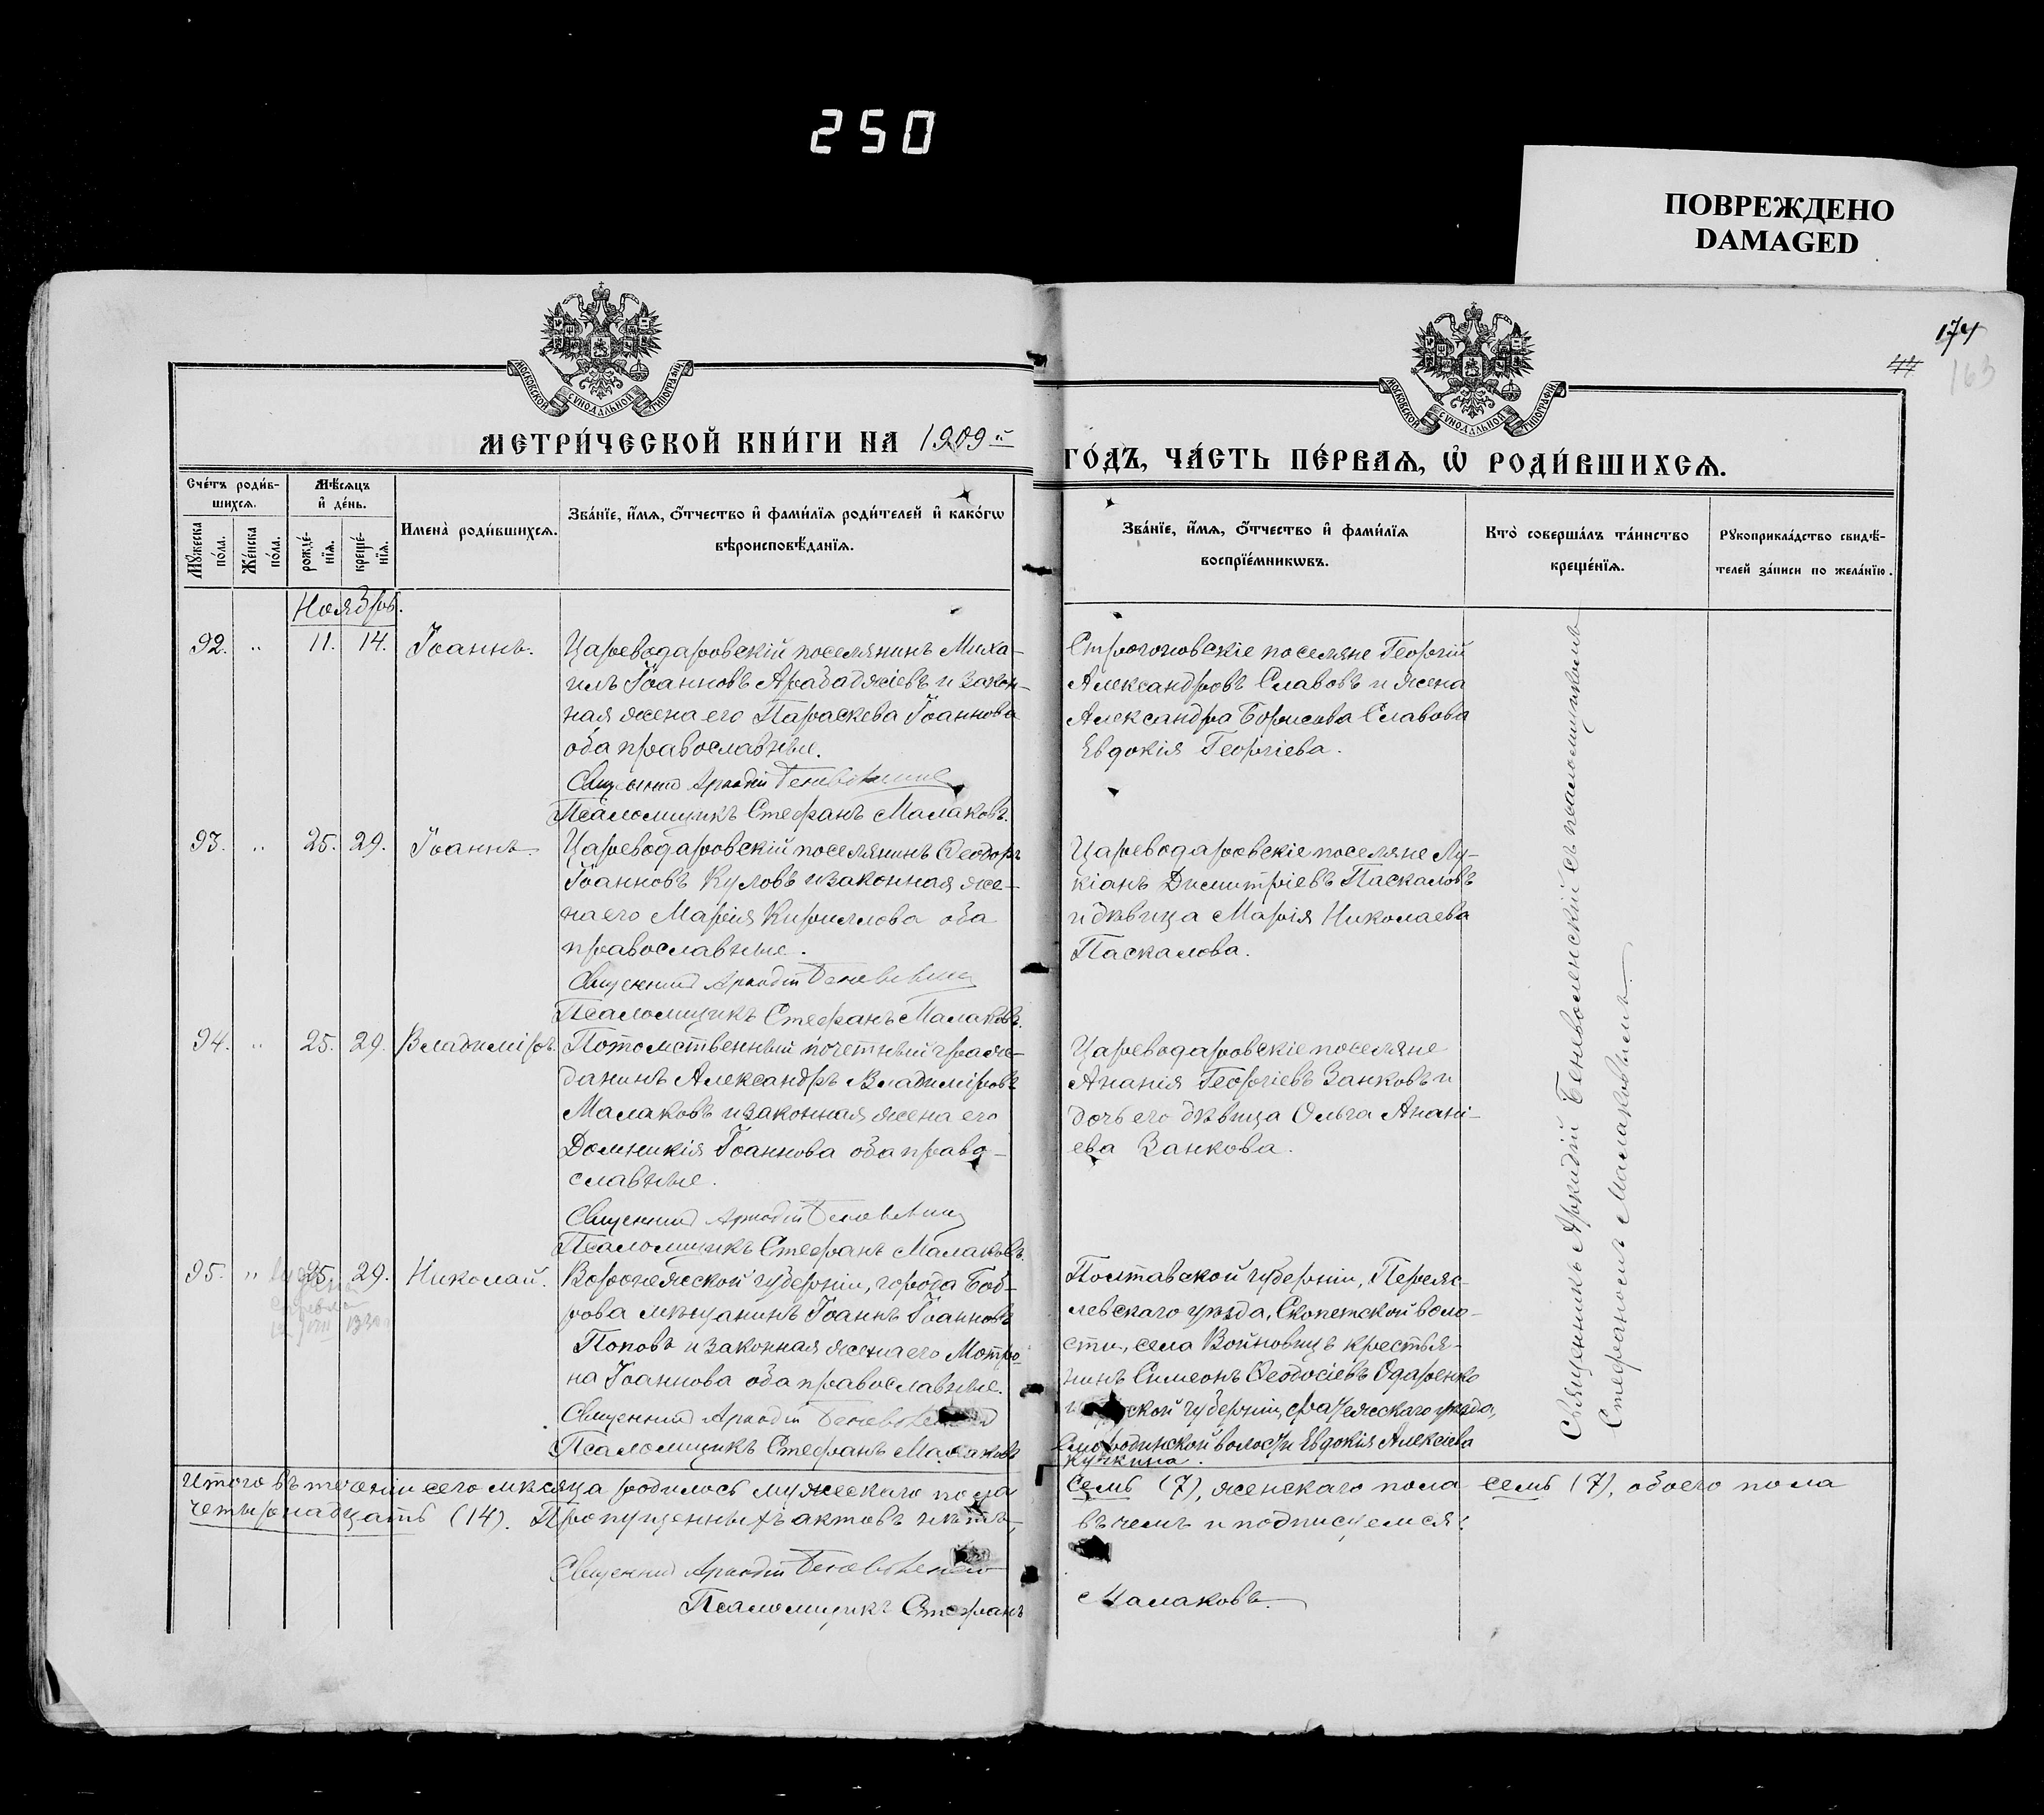 250
ПОВРЕЖДЕНО
DAMAGED
174
163
МОСКОВСКОЙ СѴНОДАЛЬНОЙ ТИПОГРАФІИ
МОСКОВСКОЙ СѴНОДАЛЬНОЙ ТИПОГРАФІИ
МЕТРИ́ЧЕСКОЙ КНИ́ГИ НА 1909 й
ГО́ДЪ, ЧА́СТЬ ПЕ́РВАѦ, Ѡ҆ РОДИ́ВШИХСѦ.
Сче́тъ роди́в-
шихсѧ.
Мꙋ́жеска по́ла.
Же́нска по́ла.
Мѣ́сѧцъ
и҆ де́нь.
рожде́-
нїѧ.
креще́-
нїѧ.
И҆мена̀ роди́вшихсѧ.
Зва́нїе, и҆́мѧ, ѻ҆́тчество и҆ фами́лїѧ роди́телей и҆ како́гѡ
вѣроисповѣ́данїѧ.
Зва́нїе, и҆́мѧ, ѻ҆́тчество и҆ фами́лїѧ
воспрїе́мникѡвъ.
Кто̀ соверша́лъ та́инство
креще́нїѧ.
Рꙋкоприкла́дство свидѣ́-
телей за́писи по жела́нїю.
Ноябрь.
92. " 11. 14. Іоаннъ.
Царeводаровскій поселянинъ Миха-
илъ Іоанновъ Арабаджіевъ и закон-
ная жена его Параскева Іоаннова
оба православные.
Священникъ Аркадій Беневоленскій
Псаломщикъ Стефанъ Малаковъ.
Строгоновскіе поселяне Георгій
Александровъ Славовъ и жена
Александра Борисова Славова
Евдокія Георгіева.
93. " 25. 29. Іоаннъ.
Царeводаровскій поселянинъ Ѳеодоръ
Іоанновъ Куловъ и законная же-
на его Марія Кириллова оба
православные.
Священникъ Аркадій Беневоленскій
Псаломщикъ Стефанъ Малаковъ.
Царeводаровскіе поселяне Лу-
кіанъ Димитріевъ Паскаловъ
и дѣвица Марія Николаева
Паскалова.
94. " 25. 29. Владиміръ.
Потомственный почетный граж-
данинъ Александръ Владиміровъ
Малаковъ и законная жена его
Домникія Іоаннова оба право-
славные.
Священникъ Аркадій Беневоленскій
Псаломщикъ Стефанъ Малаковъ.
Царeводаровскіе поселяне
Ананія Георгіевъ Занковъ и
дочь его дѣвица Ольга Анані-
ева Занкова.
95. " 25. 29. Николай.
Воронежской губерніи, города Боб-
рова мѣщанинъ Іоаннъ Іоанновъ
Поповъ и законная жена его Мотро-
на Іоаннова оба православные.
Священникъ Аркадій Беневоленскій
Псаломщикъ Стефанъ Малаковъ
Полтавской губерніи, Переяс-
лавскаго уѣзда, Скопетской воло-
сти, села Войновецъ крестья-
нинъ Симеонъ Ѳеодосіевъ Одаренко
и ской губерніи, уѣзда,
Смородинской волости Евдокія Алексіева
Священникъ Аркадій Беневоленскій съ псаломщикомъ
Стефаномъ Малаковымъ.
Итого въ теченіи сего мѣсяца родилось мужескаго пола семь (7), женскаго пола семь (7), обоего пола
четырнадцать (14). Пропущенныхъ актовъ нѣтъ, въ чемъ и подписуемся:
Священникъ Аркадій Беневоленскій
Псаломщикъ Стефанъ Малаковъ.